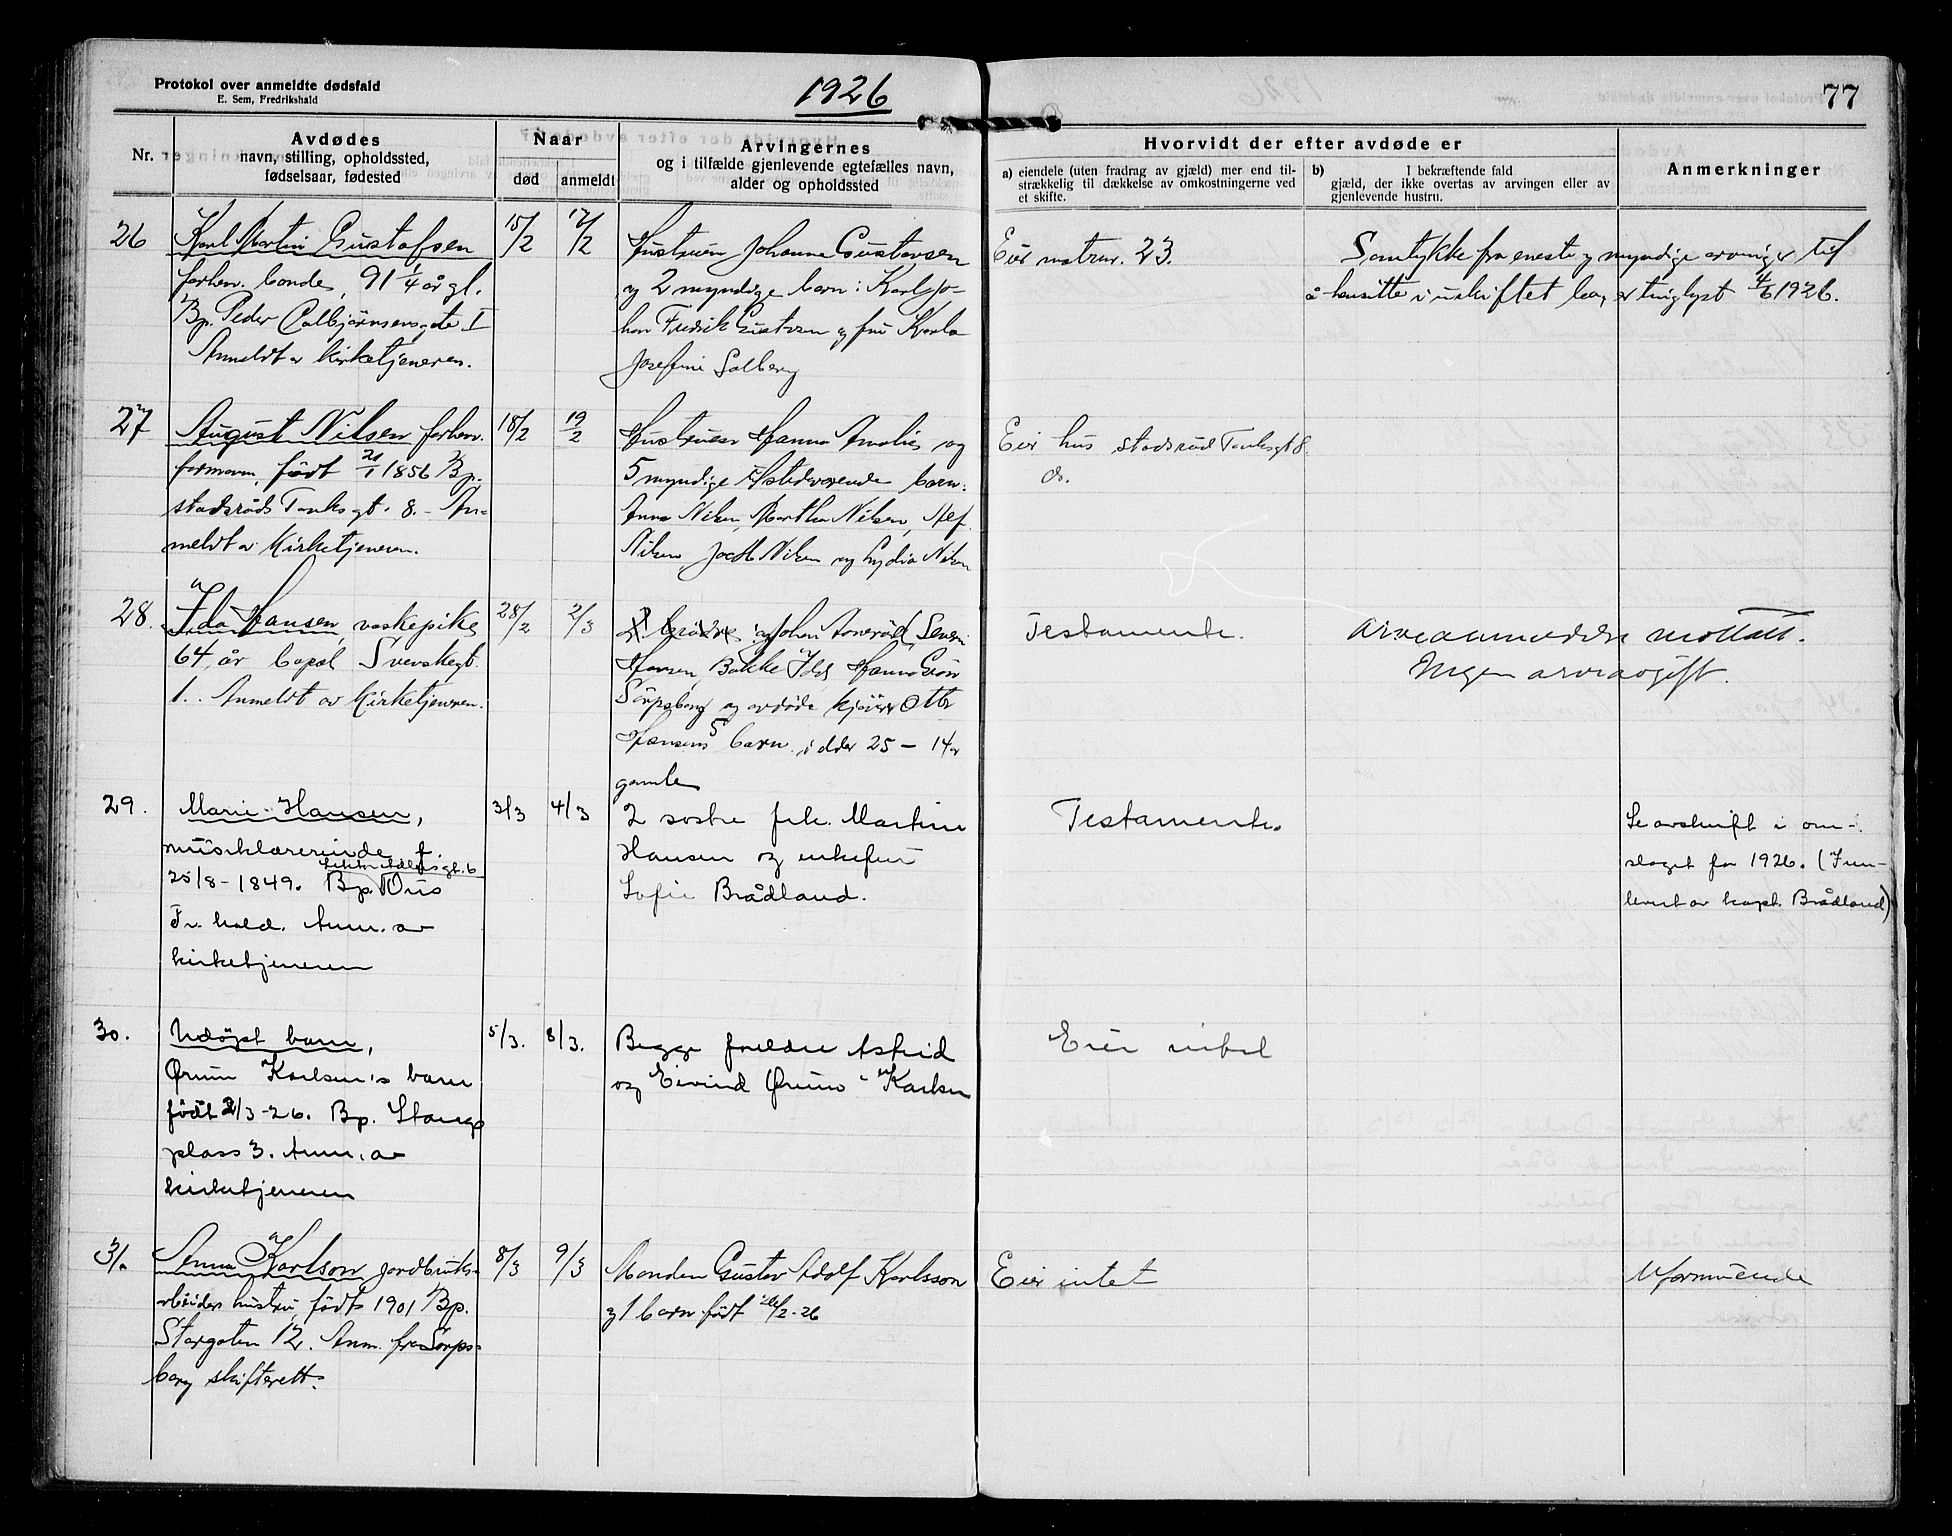 Protokol over anmeldte dødsfald
E. Sem, Fredrikshald
1926
77
Nr.
Avdødes
navn, stilling, opholdssted,
fødselsaar, fødested
Naar
død
anmeldt
Arvingernes
og i tilfælde gjenlevende egtefælles navn,
alder og opholdssted
Hvorvidt der efter avdøde er
a) eiendele (uten fradrag av gjæld) mer end til-
strækkelig til dækkelse av omkostningerne ved
et skifte.
b) I bekræftende fald
gjæld, der ikke overtas av arvingen eller av
gjenlevende hustru.
Anmerkninger
26
Karl Martin Gustafsen
forhen. bonde, 91 1/4 år gl.
Bp. Peder Colbjørnsensgate I
Anmeldt av kirketjeneren.
15/2
17/2
Hustruen Johanne Gustavsen
og 2 myndige barn: Karl Jo-
han Fredrik Gustavsen og fru Karla
Josefine Solberg
Eier matrnr. 23.
Samtykke fra eneste og myndige arvinger til
å hensitte i uskiftet bo, er tinglyst 4/6 1926.
27
August Nilsen forhen.
formann, født 20/1 1856 Bp.
stadsråd Tanksgt. 8. - An-
meldt av Kirketjeneren.
18/2
19/2
Hustruen Hanna Amalie og
5 myndige tilstedeværende barn:
Anna Nilsen, Martha Nilsen, Alf
Nilsen, Nilsen og Lydia Nilsen
Eier hus stadsråd Tanksgt 8.
28.
Ida Hansen, vaskepike,
64 år Svenskegt.
1. Anmeldt av Kirketjeneren.
28/2
2/3
Johan
Hansen, Bakke Idd, Hanna
Sarpsborg og avdøde Otto
Hansens 5 barn i alder 25 - 14 år
gamle
Testamente.
arveanmeldelse mottatt.
Ingen arveavgift.
29.
Marie Hansen,
musiklærerinde, f.
25/8 - 1849. Bp.
Fr.hald. Anm. av
kirketjeneren
3/3
4/3
2 søstre frk. Martine
Hansen og enkefru
Sofie Brådland.
Testamente.
Se avskrift i om-
slaget for 1926. (Inn-
levert av kapt. Brådland)
30.
Udøpt barn,
Ørum Karlsen's barn
født 2/3-26. Bp. Stangs
plass 3. Anm. av
kirketjeneren
5/3.
8/3.
Begge foreldre Astrid
og Eivind Ørum-Karlsen
Eier intet
31.
Anna Karlson, jordbruks-
arbeiders hustru, født 1901 Bp.
Storgaten 12. Anm. fra Sarps-
borg skifterett.
8/3
9/3
Manden Gustav Adolf Karlsson
og 1 barn født 26/2-26
Eier intet
Uformuende